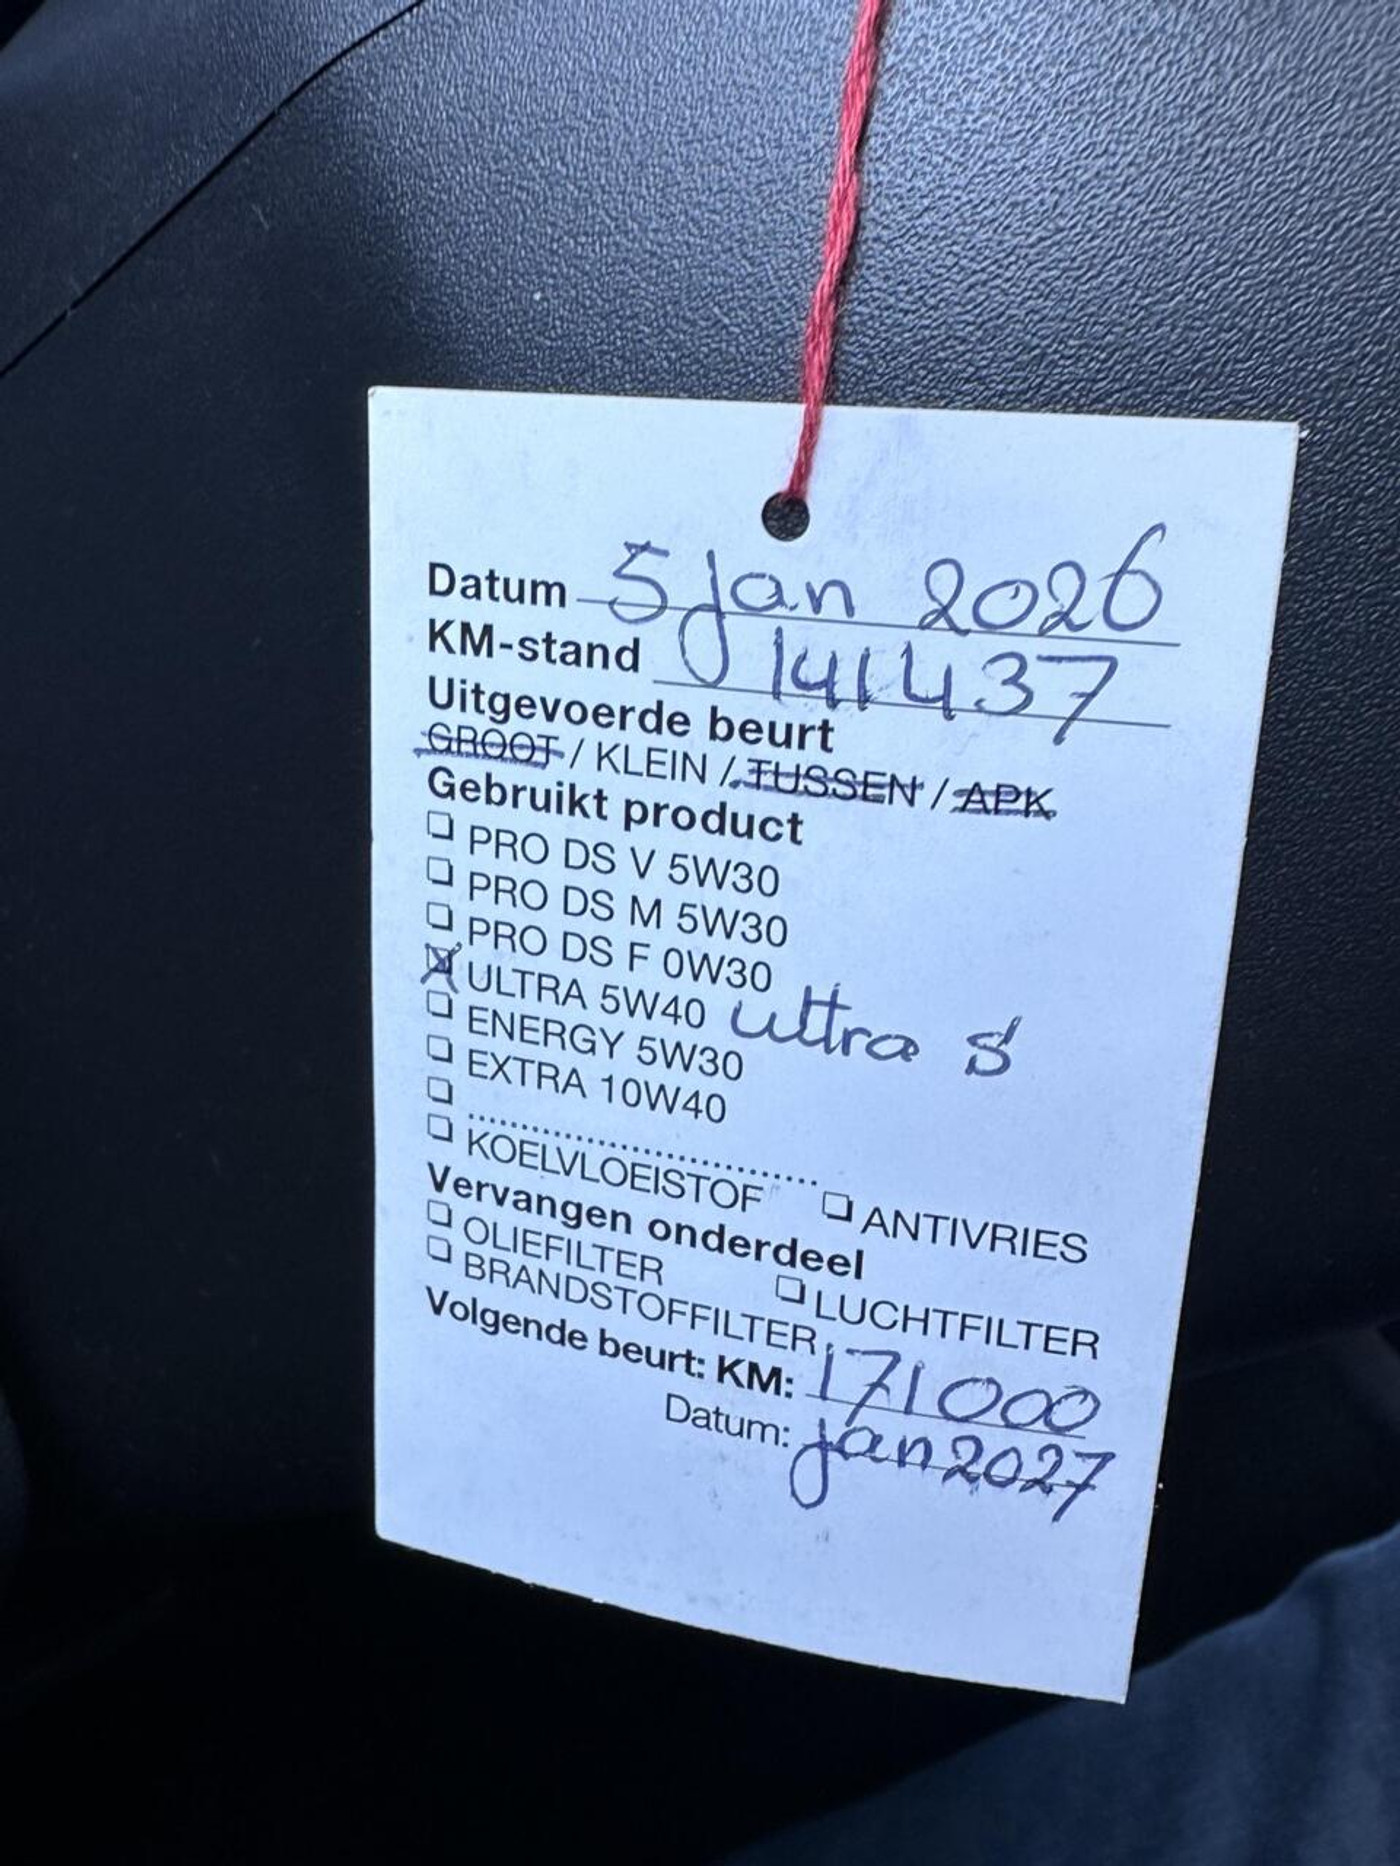 Datum 5 jan 2026
KM-stand 141437
Uitgevoerde beurt
GROOT / KLEIN / TUSSEN / APK
Gebruikt product
❏ PRO DS V 5W30
❏ PRO DS M 5W30
❏ PRO DS F 0W30
☒ ULTRA 5W40 ultra S
❏ ENERGY 5W30
❏ EXTRA 10W40
❏ ..............................
❏ KOELVLOEISTOF ❏ ANTIVRIES
Vervangen onderdeel
❏ OLIEFILTER ❏ LUCHTFILTER
❏ BRANDSTOFFILTER
Volgende beurt: KM: 171000
Datum: jan 2027